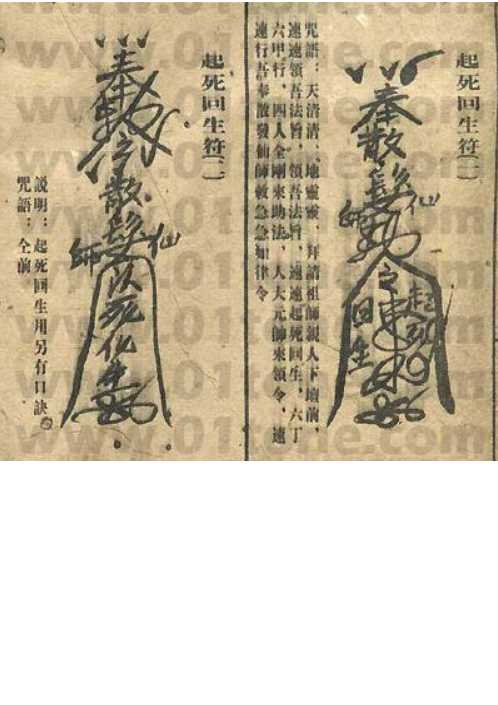 起死回生符(一)
奉
散髮
仙師
勅令
起死
回生
咒語：天清清，地靈靈，拜請祖師親人下壇前，
速速領吾法旨，領吾法旨，速速起死回生，六丁
六甲行，四人金剛來助法，人大元帥來領令，速
速行吾奉散發仙師敕急急如律令
起死回生符(二)
奉
勅令
散髮
仙師
以死化生
說明：起死回生用另有口訣。
咒語：仝前
www.01tone.com